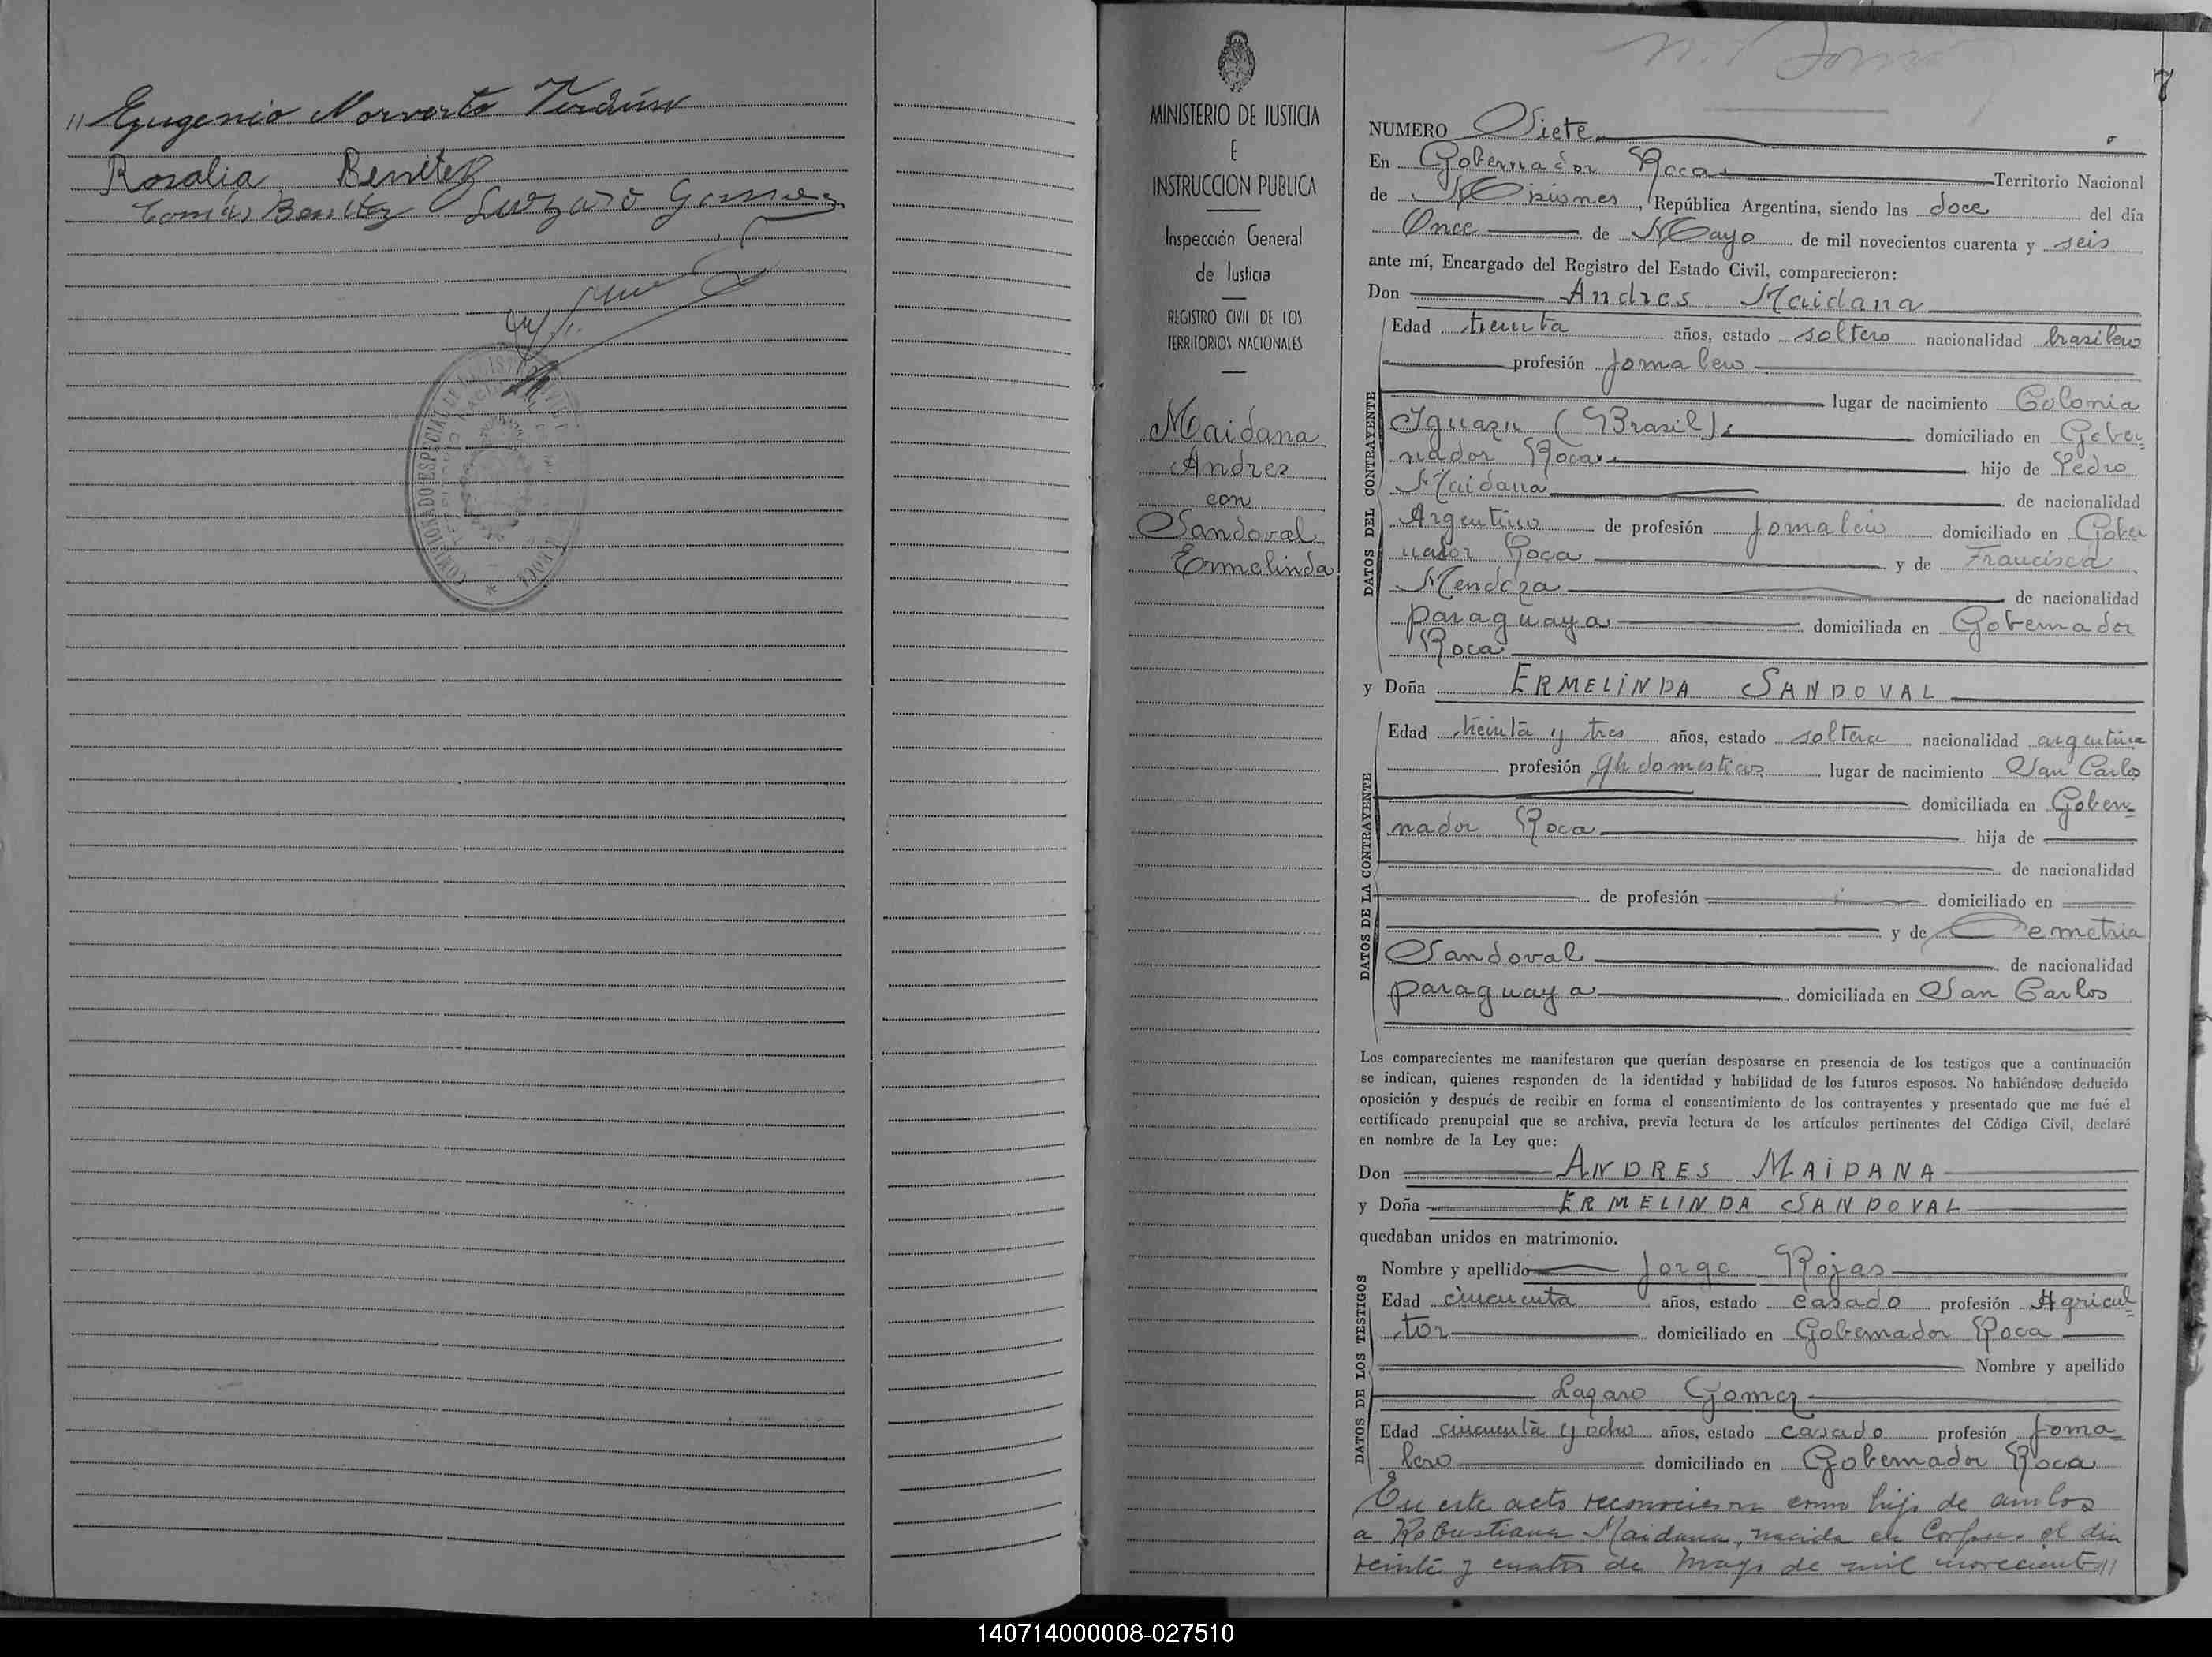 " Eugenio Norverto Verdún
Rosalia Benitez
Tomás Benitez Luazaro Gomez
MINISTERIO DE JUSTICIA
E
INSTRUCCION PUBLICA
Inspección General
de Justicia
REGISTRO CIVIL DE LOS
TERRITORIOS NACIONALES
Maidana
Andres
con
Sandoval
Ermelinda
7
NUMERO Siete
En Gobernador Roca Territorio Nacional
de Misiones, República Argentina, siendo las doce del día
Once de Mayo de mil novecientos cuarenta y seis
ante mí, Encargado del Registro del Estado Civil, comparecieron:
Don Andres Maidana
DATOS DEL CONTRAYENTE
Edad treinta años, estado soltero nacionalidad brasilero
profesión jornalero
lugar de nacimiento Colonia
Iguazu (Brasil) domiciliado en Gober=
nador Roca hijo de Pedro
Maidana de nacionalidad
Argentino de profesión jornalero domiciliado en Gober
nador Roca y de Francisca
Mendoza de nacionalidad
paraguaya domiciliada en Gobernador
Roca
y Doña ERMELINDA SANDOVAL
DATOS DE LA CONTRAYENTE
Edad treinta y tres años, estado soltera nacionalidad argentina
profesión qh domesticos lugar de nacimiento San Carlos
domiciliada en Gober=
nador Roca hija de
de nacionalidad
de profesión domiciliado en
y de Demetria
Sandoval de nacionalidad
paraguaya domiciliada en San Carlos
Los comparecientes me manifestaron que querían desposarse en presencia de los testigos que a continuación
se indican, quienes responden de la identidad y habilidad de los futuros esposos. No habiéndose deducido
oposición y después de recibir en forma el consentimiento de los contrayentes y presentado que me fué el
certificado prenupcial que se archiva, previa lectura de los artículos pertinentes del Código Civil, declaré
en nombre de la Ley que:
Don ANDRES MAIDANA
y Doña ERMELINDA SANDOVAL
quedaban unidos en matrimonio.
DATOS DE LOS TESTIGOS
Nombre y apellido Jorge Rojas
Edad cincuenta años, estado casado profesión Agricul=
tor domiciliado en Gobernador Roca
Nombre y apellido
Lazaro Gomez
Edad cincuenta y ocho años, estado casado profesión jorna=
lero domiciliado en Gobernador Roca
En este acto reconocieron como hijo de ambos
a Robustiana Maidana, nacida en Corpus el día
veinte y cuatro de Mayo de mil novecientos //
140714000008-027510